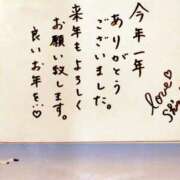 今年一年
ありがとう
ございました。
来年もよろしく
お願い致します。
良いお年を…♡
love♡